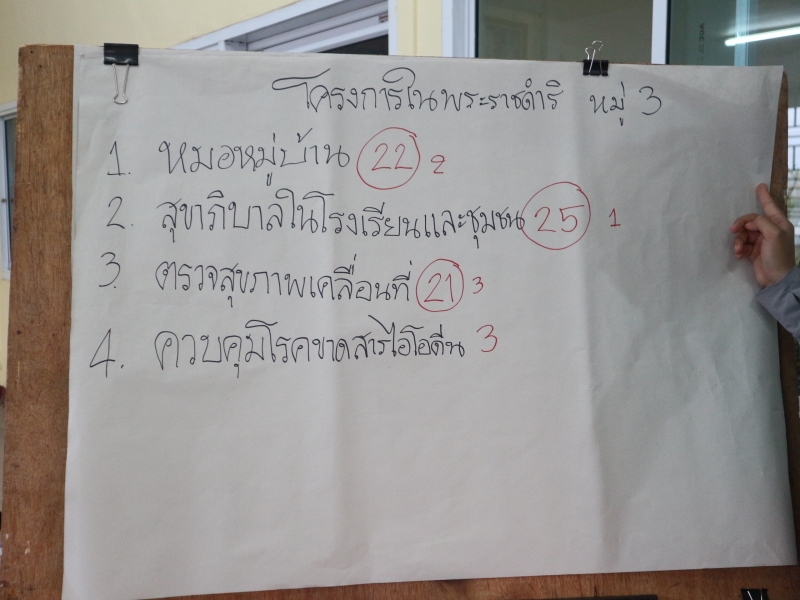 โครงการในพระราชดำริ หมู่ 3
1. หมอหมู่บ้าน 22 2
2. สุขาภิบาลในโรงเรียนและชุมชน 25 1
3. ตรวจสุขภาพเคลื่อนที่ 21 3
4. ควบคุมโรคขาดสารไอโอดีน 3